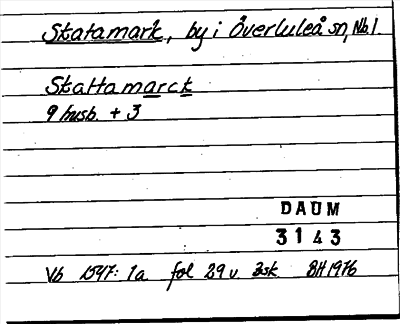 Skatamark, by i Överluleå sn, Nb.l.
Skattamarck
9 husb. + 3
DAUM
3143
Vb 1547: 1a fol 29 v. 3sk BH 1976